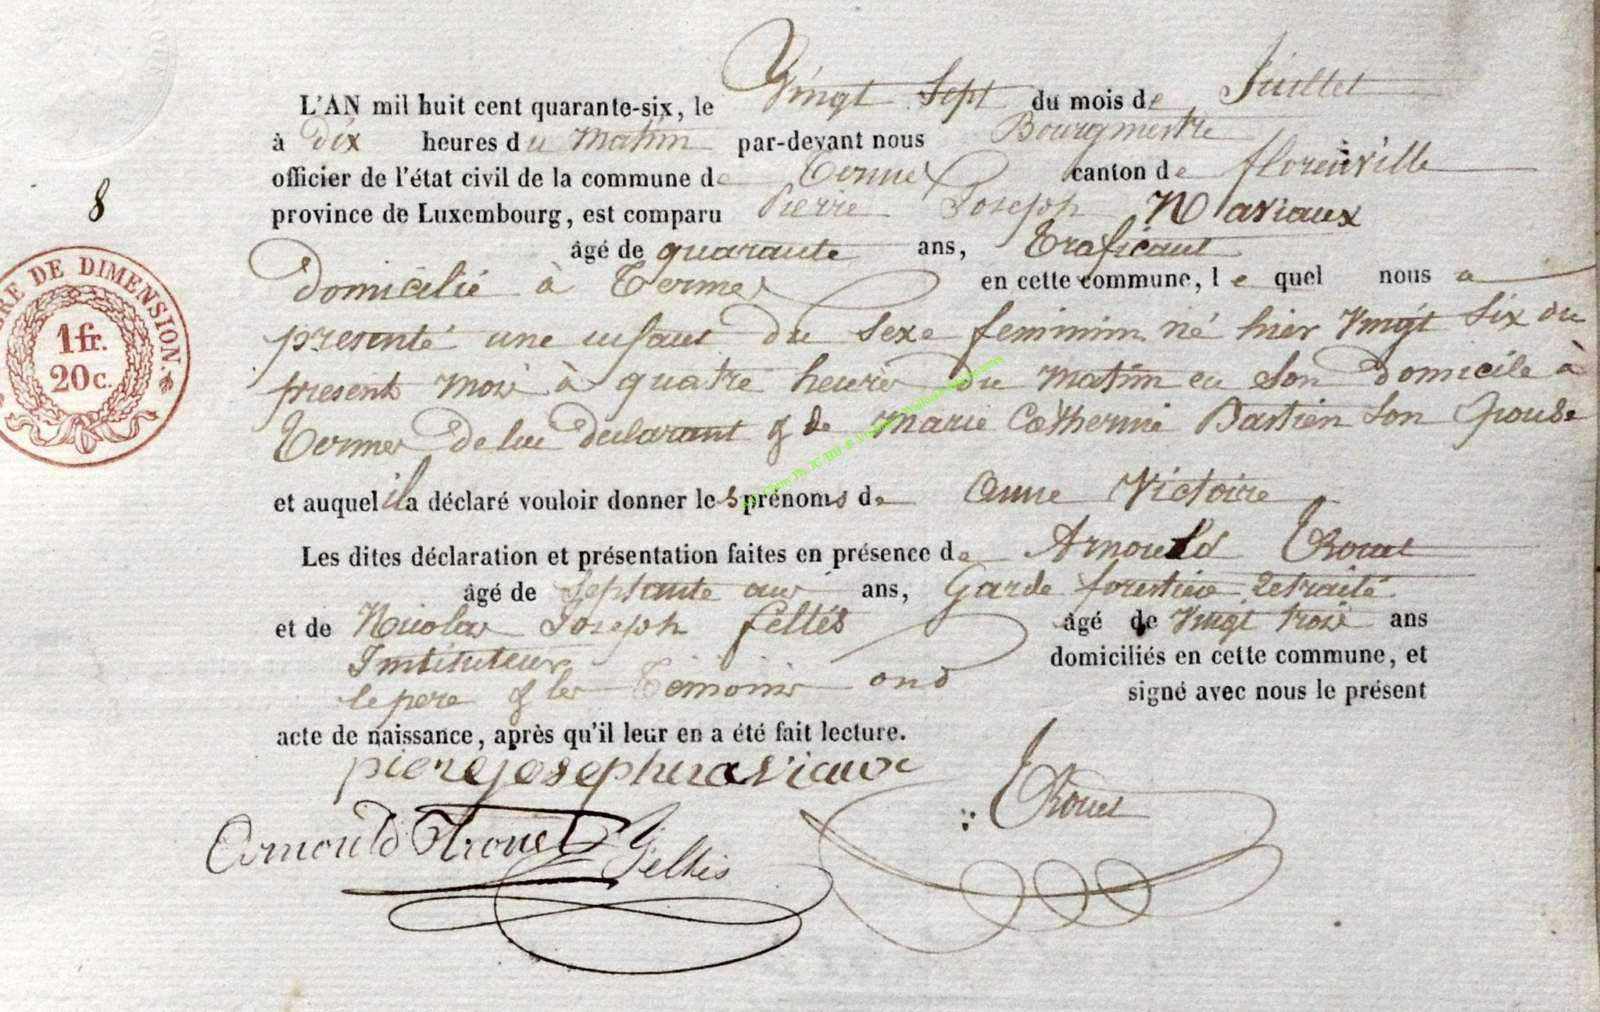 L'AN mil huit cent quarante-six, le Vingt Sept du mois de Juillet
à dix heures du matin par-devant nous Bourgmestre
officier de l'état civil de la commune de Termes canton de florenville
province de Luxembourg, est comparu Pierre Joseph Naviaux
âgé de quarante ans, Traficant
domicilié à Termes en cette commune, le quel nous a
presenté une enfant du sexe feminin né hier Vingt Six du
present mois à quatre heures du matin en son domicile à
Termes de lui declarant & de Marie Catherine Bastien son Epouse
8
TIMBRE DE DIMENSION.
1 fr.
20 c.
et auquel il a déclaré vouloir donner les prénoms de Anne Victoire
Les dites déclaration et présentation faites en présence de Arnould Trouet
âgé de Septante ans, Garde forestier retraité
et de Nicolas Joseph feltés âgé de Vingt trois ans
Instituteur domiciliés en cette commune, et
le pere & les Temoins ond signé avec nous le présent
acte de naissance, après qu'il leur en a été fait lecture.
piere joseph naviaux
Trouet
Arnould Trouet
Feltés